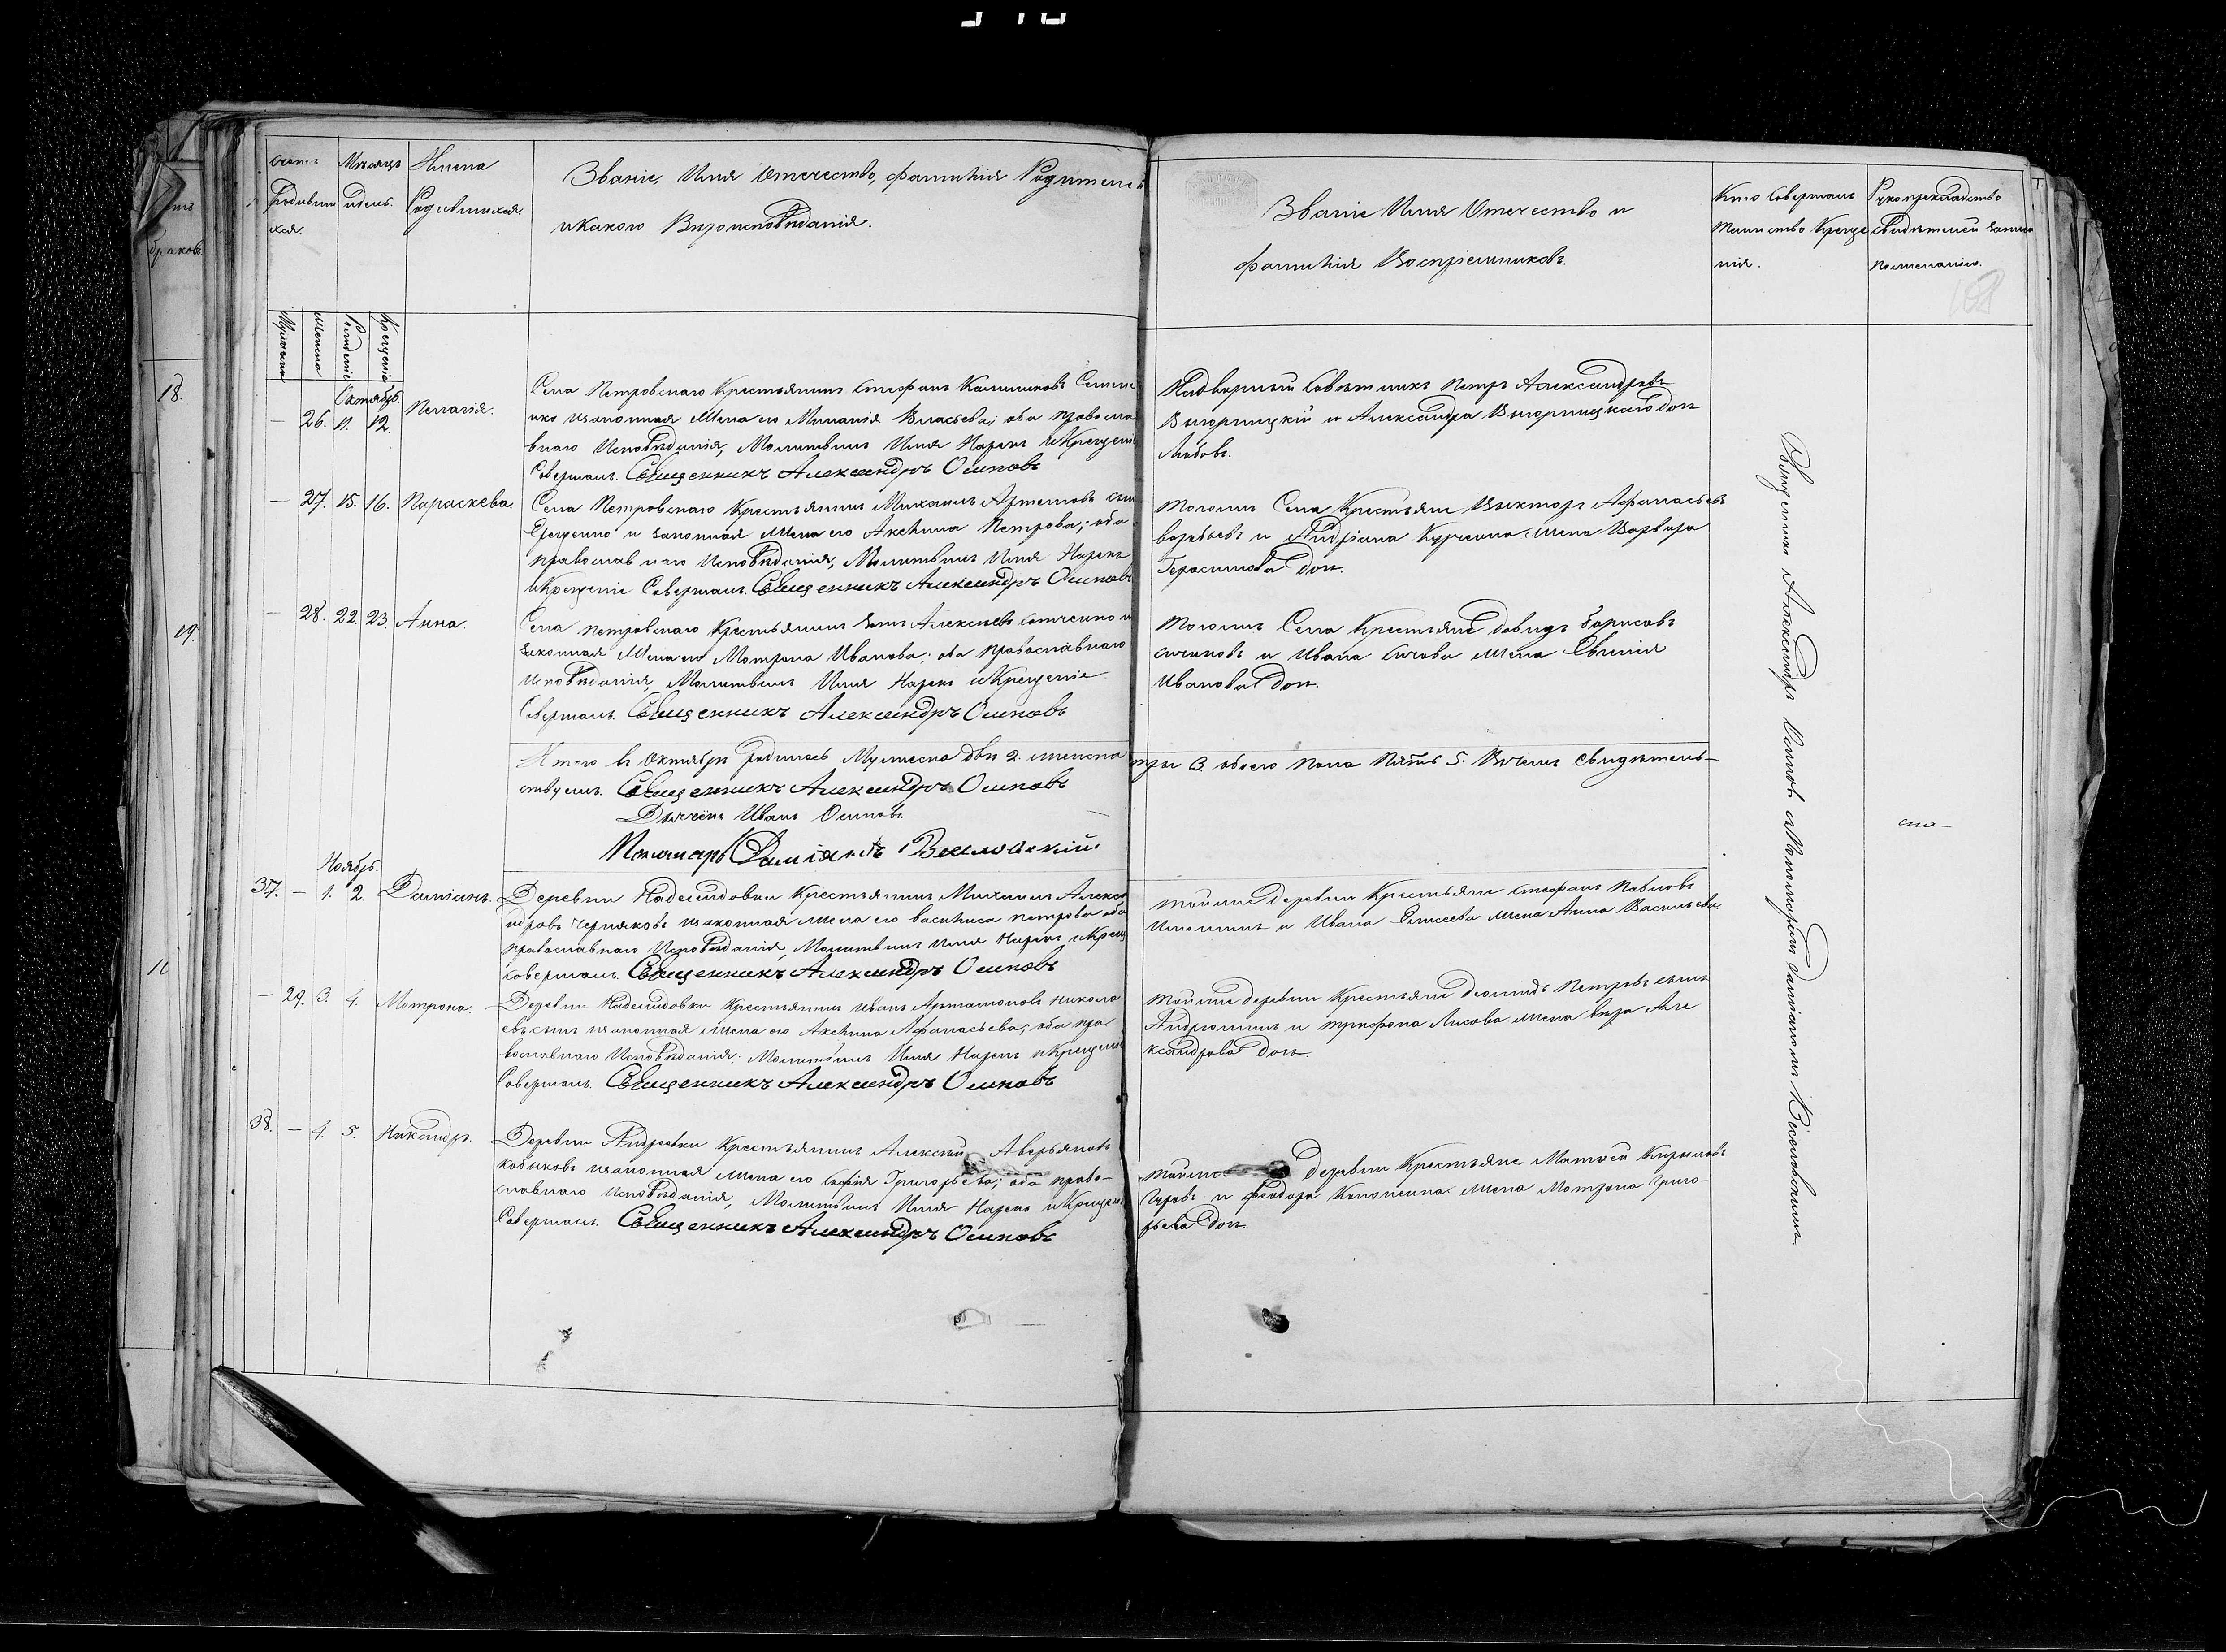 Мѣсяцъ
Имена
Родивш
ихся.
и день.
Родившихся.
Званіе, Имя Отечество, фамилія Родителей
и какого Вѣроисповѣданія.
Званіе Имя Отечество и
фамилія Воспріемниковъ.
Кто Совершалъ
Таинство Креще
нія.
Рукоприкладство
Свидѣтелей записи
по желанію.
Мужеска
Женска
Рожденіе
Крещеніе
Октябрь.
— 26. 11. 12. Пелагія.
Села Петровскаго Крестьянинъ Стефанъ Калинниковъ
законная Жена его Миланія Власьева; оба правосла
внаго Исповѣданія, Молитвилъ Имя Нарекъ и Крещеніе
Совершалъ. Священникъ Александръ Осиповъ
Надворный Совѣтникъ Петръ Александровъ
и Александра
Любовь.
— 27. 15. 16. Параскева.
Села Петровскаго Крестьянинъ Михаилъ Артемовъ сынъ
и законная Жена его Аксинia Петрова; оба
православнаго Исповѣданія, Молитвилъ Имя Нарекъ
и Крещеніе Совершалъ. Священникъ Александръ Осиповъ
Тогожъ Села Крестьяне Викторъ Афанасьевъ
и Андріана жена Варвара
Герасимова Доч.
— 28. 22. 23. Анна.
Села Петровскаго Крестьянинъ Алексѣевъ и
законная Жена его Мотрона Иванова; оба православнаго
Исповѣданія, Молитвилъ Имя Нарекъ и Крещеніе
Совершалъ. Священникъ Александръ Осиповъ
Тогожъ Села Крестьяне Давидъ Борисовъ
и Ивана жена Евгенія
Иванова Доч.
Итого въ Октябрѣ Родилось Мужеска два 2. женска
три 3. обоего пола Пять 5. Въ чемъ Свидѣтель-
ствуемъ. Священникъ Александръ Осиповъ
Дьячекъ Иванъ Осиповъ.
Пономарь Даміанъ
Ноябрь.
37. — 1. 2. Даміанъ.
Деревни Надеждовки Крестьянинъ Михаилъ Алекса
ндровъ Черняковъ законная жена его Василиса Петрова оба
православнаго Исповѣданія, Молитвилъ имя Нарекъ и Крещ
совершалъ. Священникъ Александръ Осиповъ
Тойже Деревни Крестьяне Стефанъ Павловъ
и Ивана Елисеева жена Анна Васильева.
— 29. 3. 4. Мотрона.
Деревни Надеждовки Крестьянинъ Иванъ Артамоновъ Никола
евъ сынъ законная жена его Аксинia Афанасьева; оба пра
вославнаго Исповѣданія; Молитвилъ Имя Нарекъ и Крещеніе
Совершалъ. Священникъ Александръ Осиповъ
Тойже Деревни Крестьяне Діомидъ Петровъ сынъ
Андрюшинъ и Трифона Лисова жена Вѣра Але
ксандрова Доч.
38. — 4. 5. Никандръ.
Деревни Андреевки Крестьянинъ Алексѣй Аверьяновъ
Кобыковъ законная жена его Софія Григорьева; оба право-
славнаго Исповѣданія, Молитвилъ Имя Нарекъ и Крещеніе
Совершалъ. Священникъ Александръ Осиповъ
Тойже Деревни Крестьяне Матвей Кириловъ
Гуровъ и Феодора жена Мотрона Григо-
рьева Доч.
Священникъ Александръ Осиповъ съ Пономаремъ Даміаномъ
18.
19.